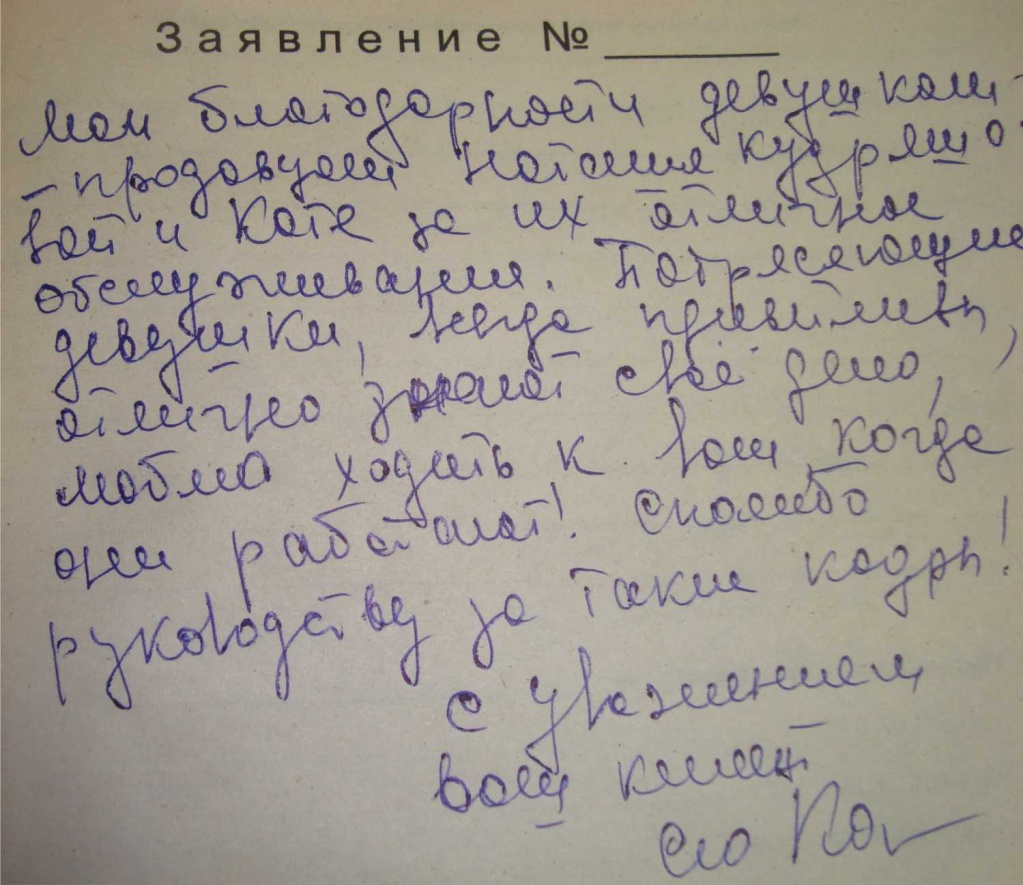 Заявление № ______
Мои благодарности девушкам-
-продавцам Наташе Кудряшо-
вой и Кате за их отличное
обслуживание. Потрясающие
девушки, всегда приветливы,
отлично знают своё дело,
люблю ходить к вам, когда
они работают! Спасибо
руководству за такие кадры!
С уважением
ваш клиент